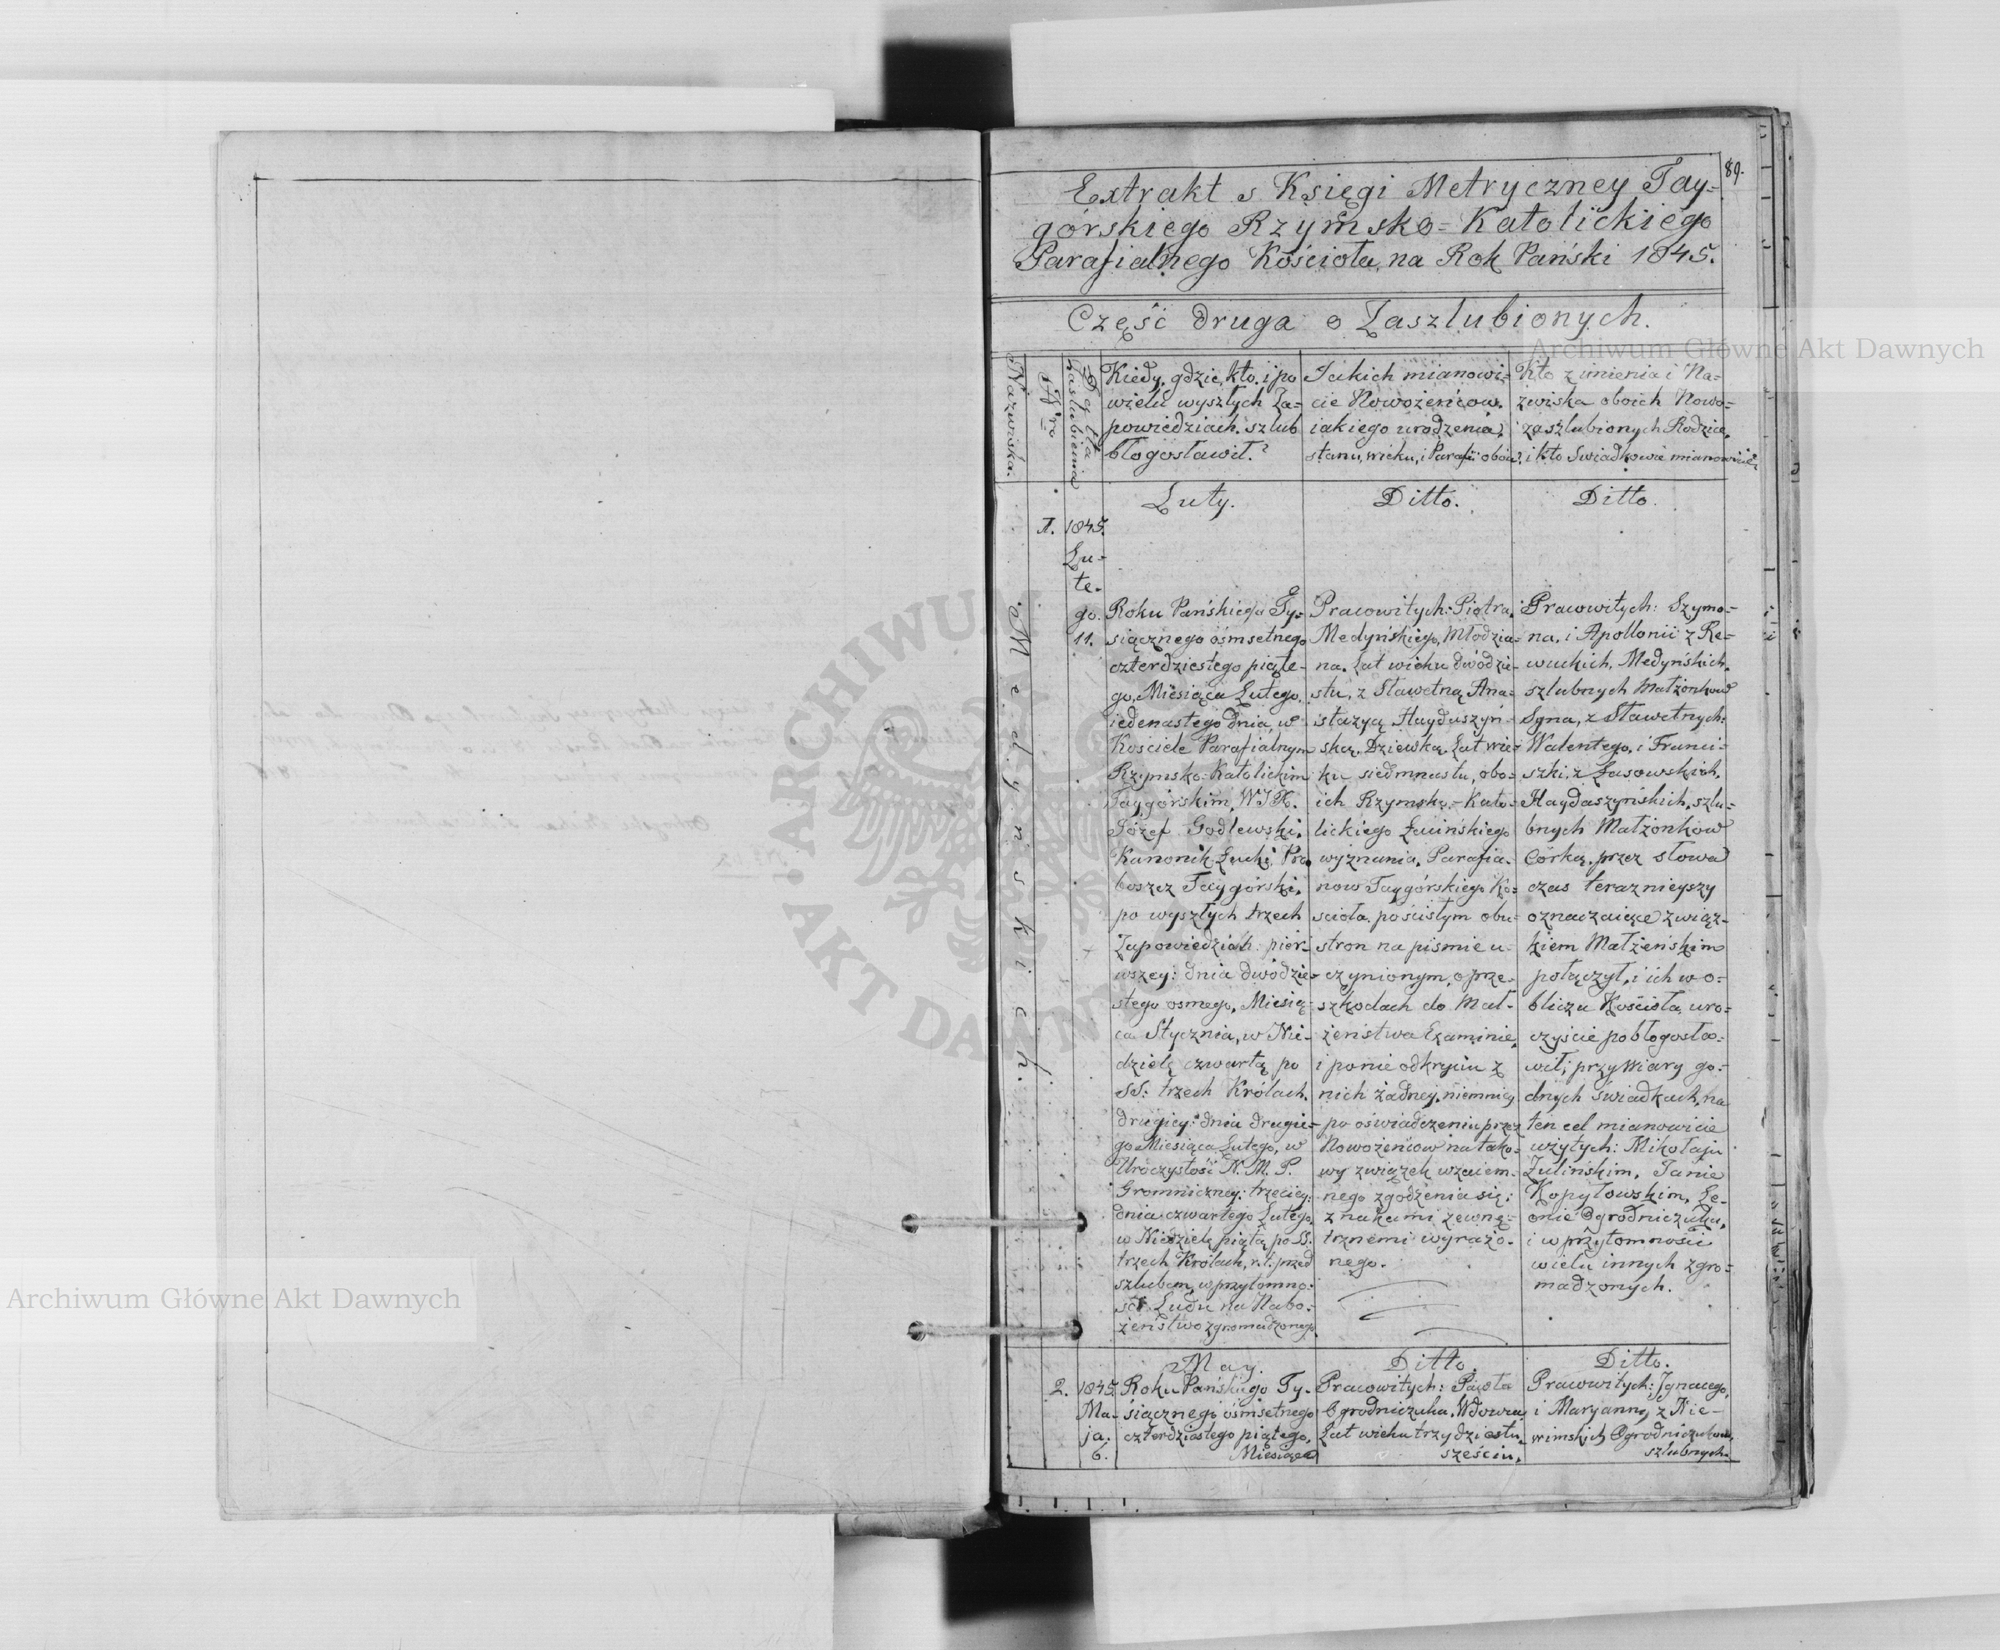 89.
Extrakt s Księgi Metryczney Tay=
górskiego Rzymsko=Katolickiego
Parafialnego Kościoła, na Rok Pański 1845.
Część druga o Zaszlubionych.
Nazwiska.
Nro
Data Zaslubienia
Kiedy, gdzie, kto, i po
wielu wyszłych Za=
powiedziach, szlub
błogosławił?
Jakich mianowi=
cie Nowożeńcow,
iakiego urodzenia,
stanu, wieku, i Parafii oboie.
Kto z imienia i Na=
zwiska oboich Nowo=
zaszlubionych Rodzice,
i kto Swiadkowie mianowicie
Luty.
Ditto.
Ditto.
1.
1845.
Lu=
te=
go.
11.
Medynskich.
Roku Pańskiego Ty=
siącznego ośmsetnego
czterdziestego piąte=
go, Miesiąca Lutego,
iedenastego dnia, w
Kościele Parafialnym
Rzymsko=Katolickim
Taygórskim, WJX.
Józef Godlewski,
Kanonik Łucki, Pro
boszcz Taygórski,
po wyszłych trzech
Zapowiedziach: pier=
wszey: dnia dwódzie=
stego osmego, Miesią=
ca Stycznia, w Nie=
dzielę czwartą po
SS: trzech Królach,
drugiey: dnia drugie=
go Miesiąca Lutego, w
Uroczystość N. M. P.
Gromniczney: trzeciey:
dnia czwartego Lutego,
w Niedzielę piątą po SS.
trzech Królach, r. t. przed
szlubem, w przytomno=
ści Ludu na Nabo=
żeństwo zgromadzonego.
Pracowitych: Piotra
Medyńskiego, Młodzia=
na, Lat wieku dwódzie=
stu, z Sławetną Ana=
stazyą Hayduszyń=
ską, Dziewką, Lat wie=
ku siedmnastu, obo=
ich Rzymsko=Kato=
lickiego Łacińskiego
wyznania, Parafia=
now Taygórskiego Ko=
scioła, po ścisłym obu=
stron na pismie u=
czynionym, o prze=
szkodach do Mał=
żeństwa Examinie,
i po nie odkryciu z
nich żadney, niemniey
po oświadczeniu przez
Nowożeńcow na tako=
wy związek wzaiem=
nego zgodzenia się;
znakami zewnę=
trznemi wyrażo=
nego.
Pracowitych: Szymo=
na, i Apollonii z Re=
wuckich, Medyńskich,
szlubnych Małżonkow
Syna, z Sławetnych:
Walentego, i Franci=
szki, z Łasowskich,
Haydaszyńskich, szlu=
bnych Małżonkow
Corką, przez słowa
czas teraznieyszy
oznaczaiące związ=
kiem Małżeńskim
połączył, i ich w o=
bliczu Kościoła uro=
czyście pobłogosła=
wił; przy wiary go=
dnych świadkach, na
ten cel mianowicie
użytych: Mikołaju
Zulińskim, Janie
Kopyłowskim, Le=
onie Ogrodniczuku,
i w przytomności
wielu innych zgro=
madzonych.
May.
Ditto.
Ditto.
2.
1845.
Ma=
ja.
6.
Roku Pańskiego Ty=
siącznego ośmsetnego
czterdziestego piątego,
Miesiąca
Pracowitych: Pawła
Ogrodniczuka, Wdowca,
Lat wieku trzydziestu
sześciu,
Pracowitych: Jgnacego,
i Maryanny z Nie=
wimskich Ogrodniczukow
szlubnych
Archiwum Główne Akt Dawnych
Archiwum Główne Akt Dawnych
ARCHIWUM
AKT DAWNYCH